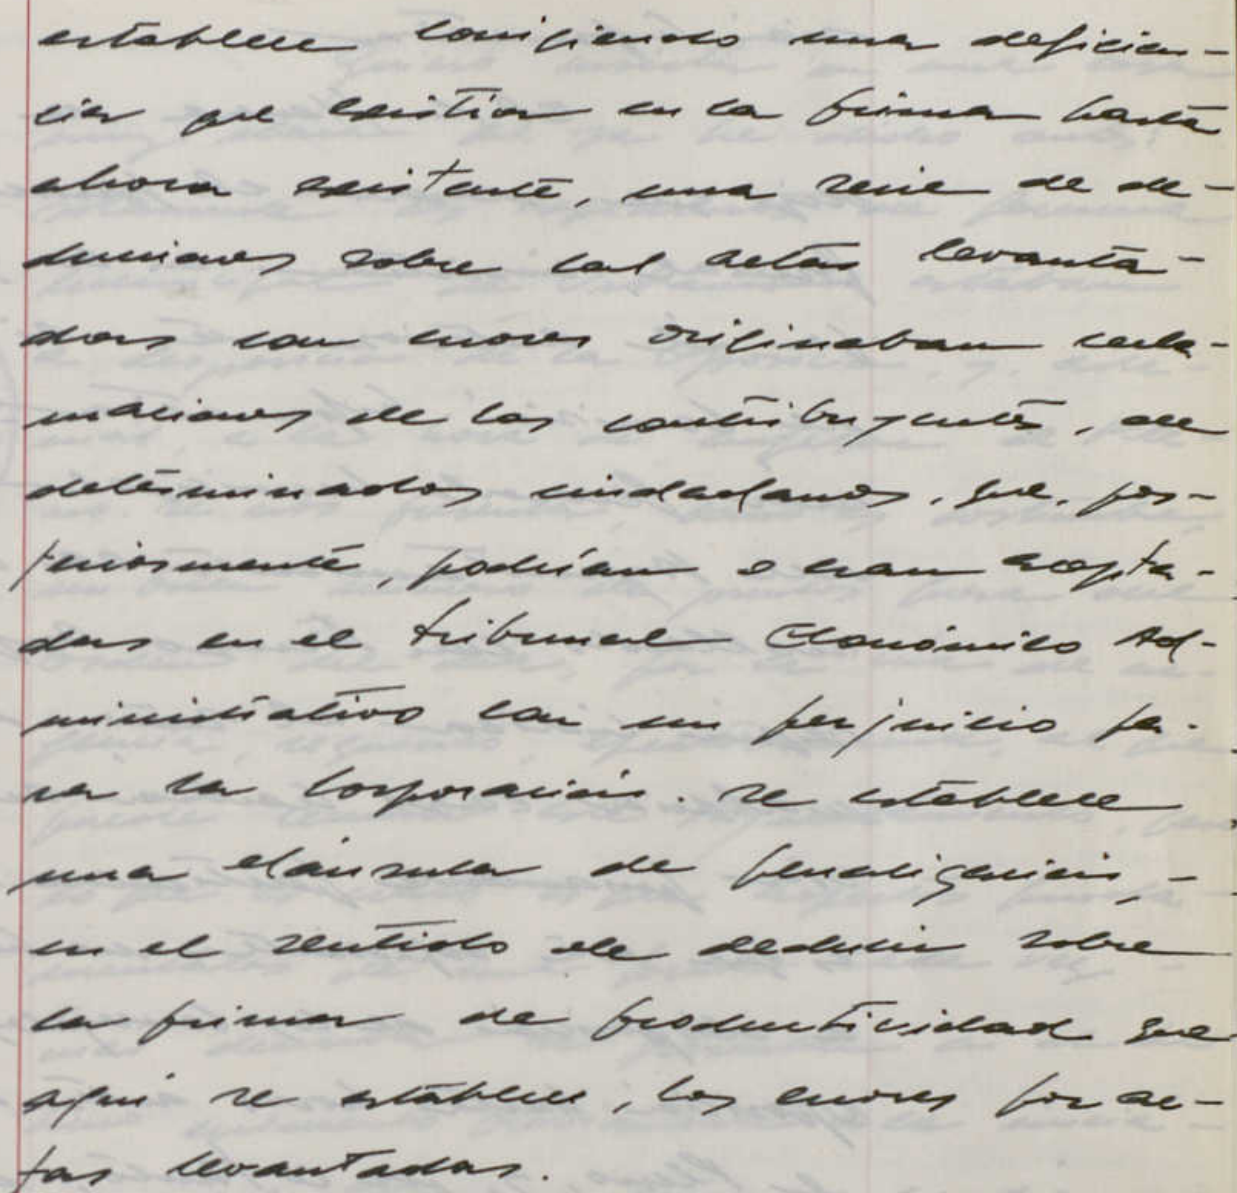 establece corrigiendo una deficien-
cia que existia en la prima hasta
ahora existente, una serie de de-
ducciones sobre las actas levanta-
das con errores originaban recla-
maciones de los contribuyentes, de
determinados ciudadanos, que, pos-
teriormente, podrían o eran acepta-
das en el tribunal Económico Ad-
ministrativo con un perjuicio pa-
ra la Corporación. se establece
una cláusula de penalización, -
en el sentido de deducir sobre
la prima de productividad que
aquí se establece, los errores por ac-
tas levantadas.